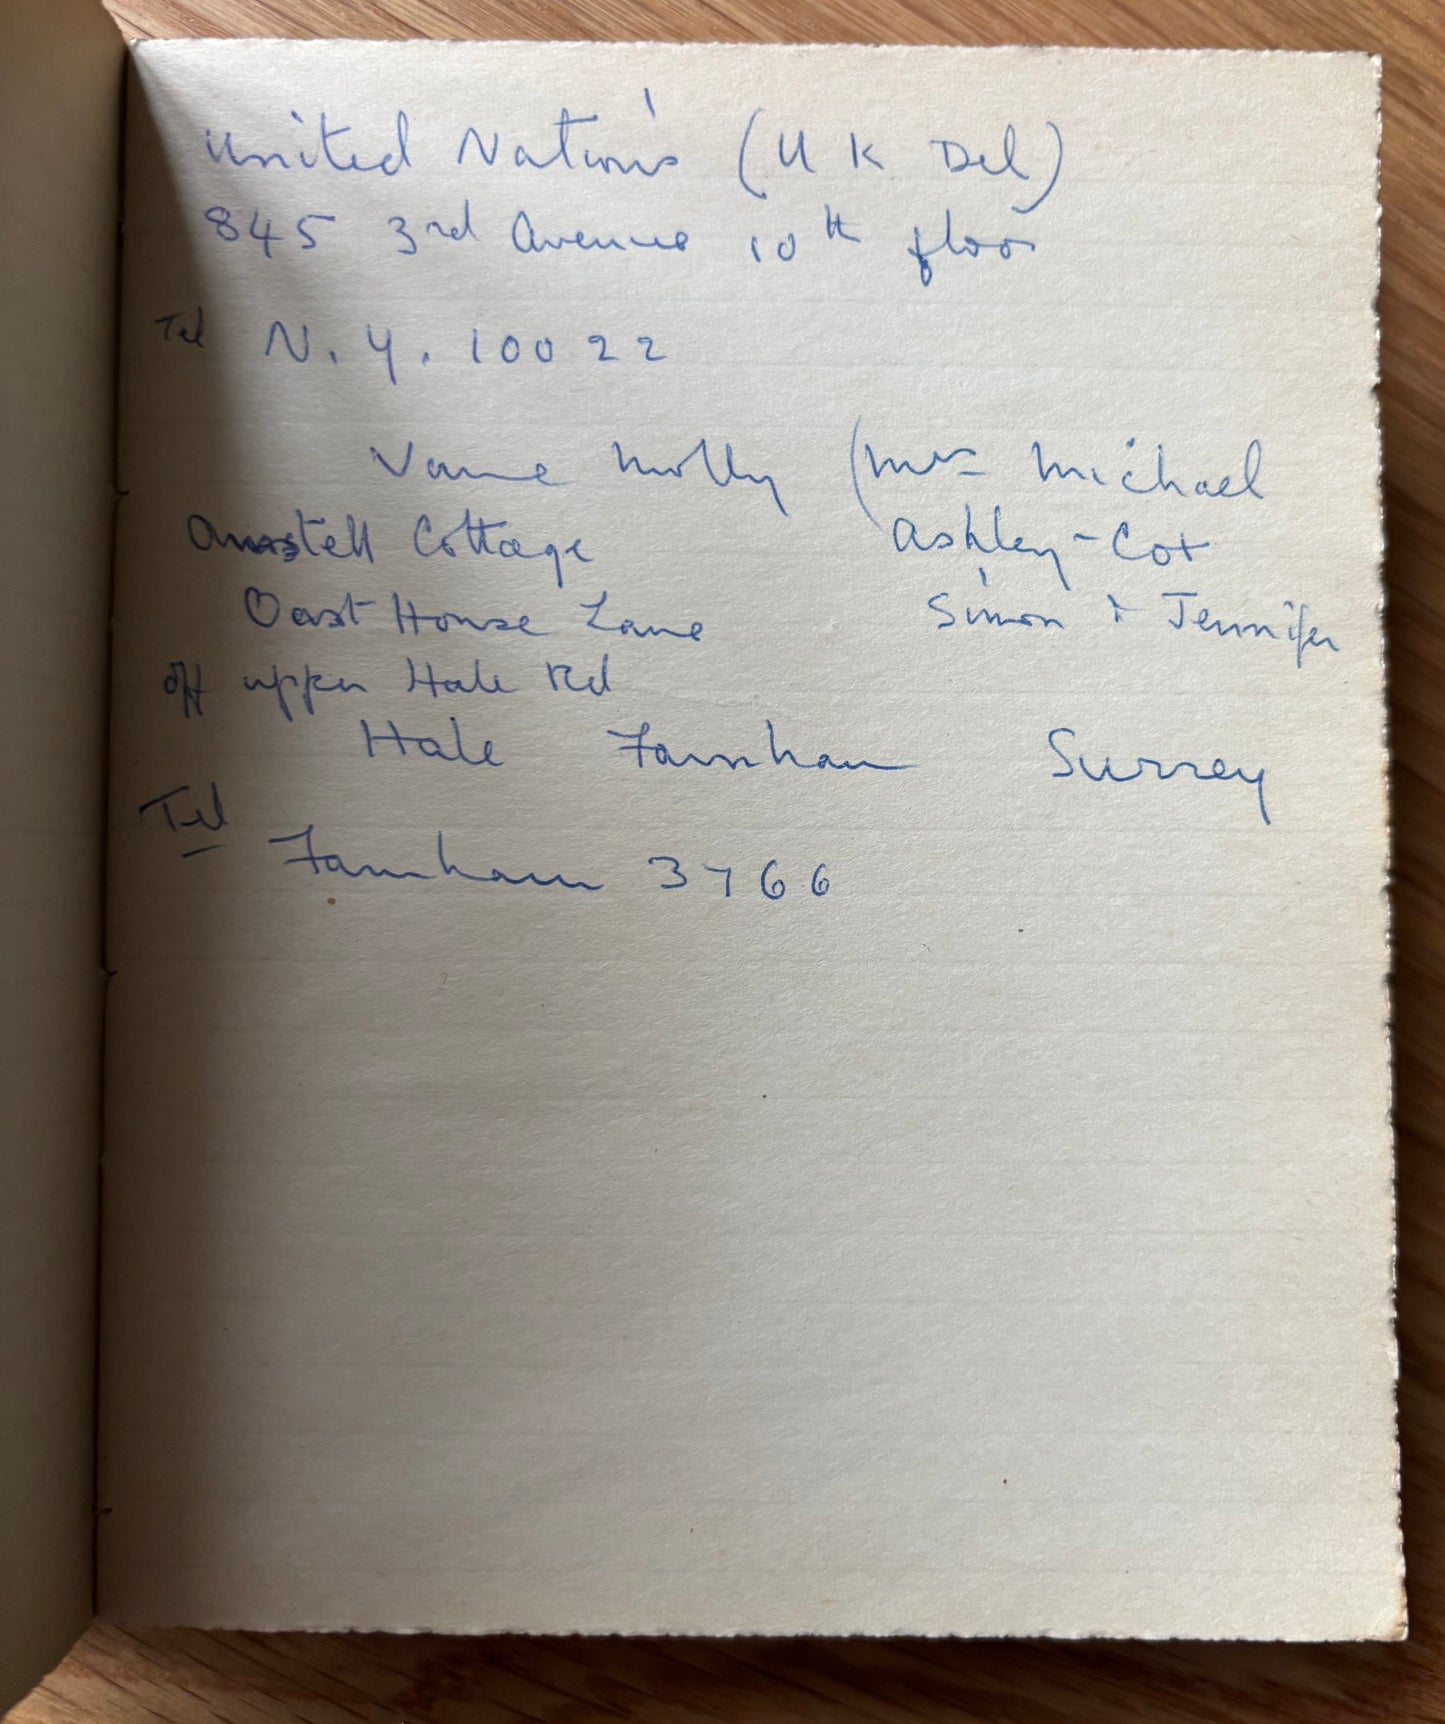 United Nations (U K Del)
845 3rd Avenue 10th floor
Tel N.Y. 10022
Vane Molly (Mrs Michael
Cottage Ashley-Cox
Oast House Lane Simon + Jennifer
off upper Hale Rd
Hale Farnham Surrey
Tel
Farnham 3766